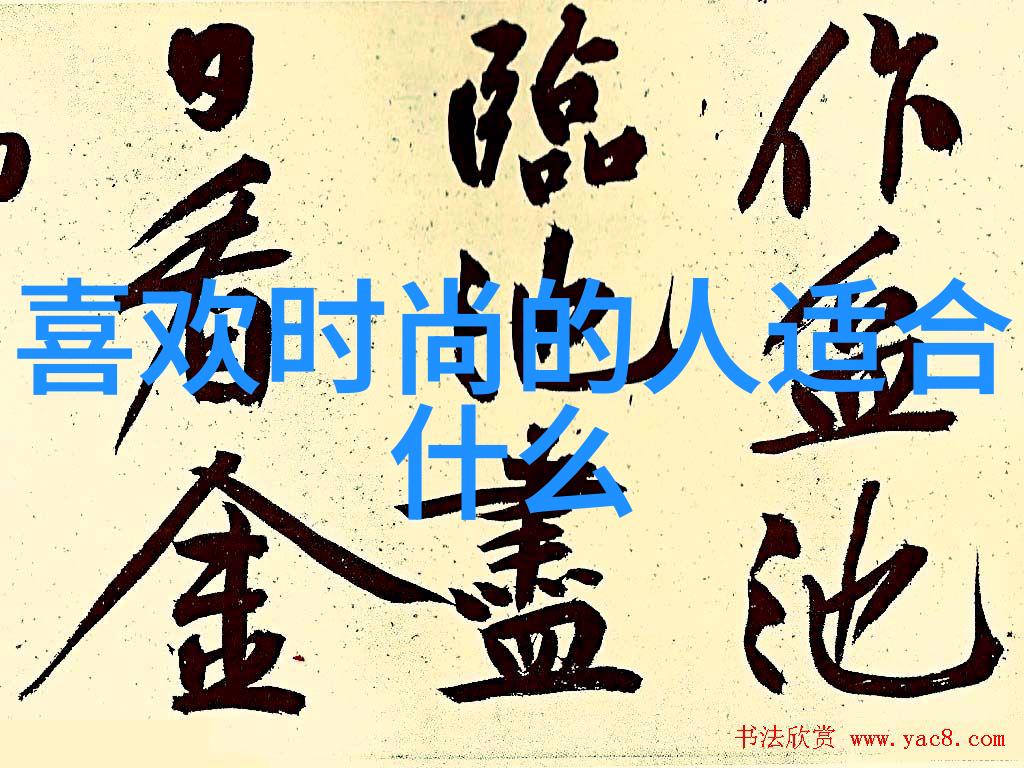 作盆池
臨池盡
日看金
喜欢时尚的人适合
什么
书法欣赏 www.yac8.com